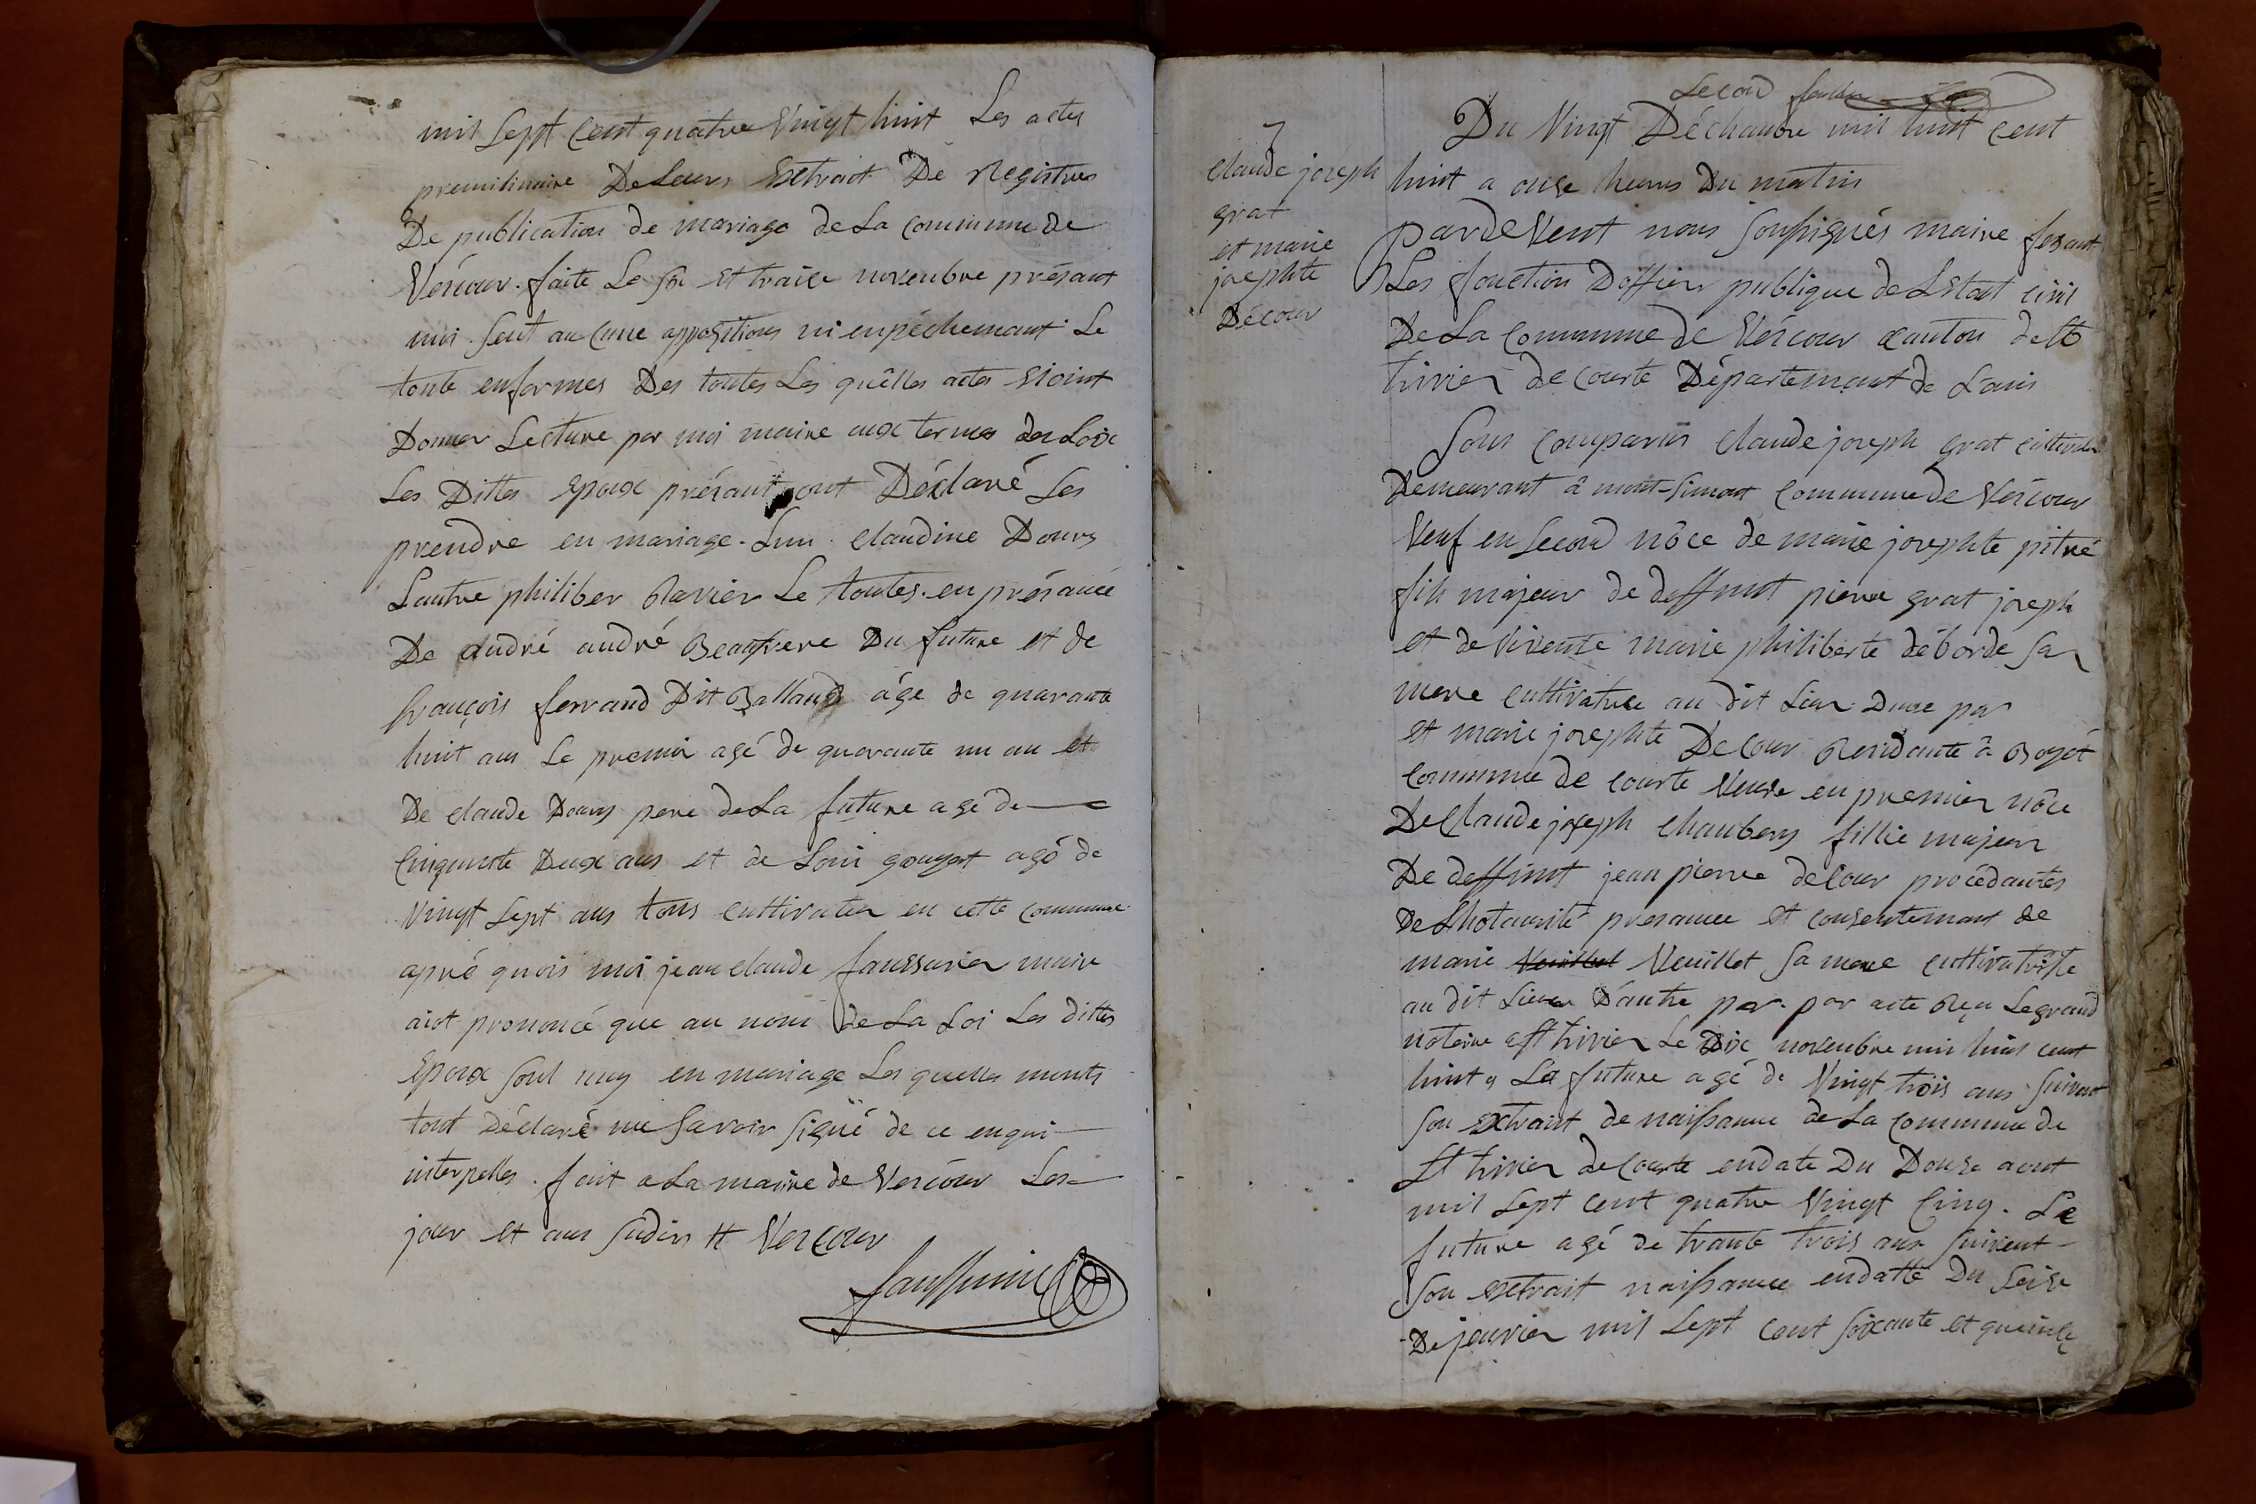 mil sept cent quatre vingt huit Les actes
premilinaire De Leurs Extrait De Registres
De publication de mariage de La commune de
Vescour. faite Le six et traise novenbre présant
moi. sent au cune appositions ni enpéchemant Le
toute enformes Des toutes Les quêlles actes etoint
Donner Lecture par moi maire aux termes des Loix
Les Dittes Epoux présant ont Déclaré Les
prendre en mariage. Lun. claudine Dours
Lautre philiber Ravier Le toutes. en présance
De andré andré Beaufrere Du future et de
françois ferrand Dit Balland âge de quarante
huit ans Le premier agé de quarante un an et
De claude Dours pere de La future agé de
Cinquente Deux ans et de Loui gouyat agé de
Vingt Sept ans tous cultivater en cette commune
apré quois moi jean claude faussurier maire
aiot prononcé que au nom de La Loi Les dittes
Epoux sont uny en mariage Les quelles monts
tout Déclaré ne Savoir signé de ce enqui
interpelles. fait a La mairie de Vescour Les
jour et ans sudis # Vescour
faussurier
Second
Du Vingt Déchanbre mil huit cent
7
claude joseph
grat
et marie
josephte
Décour
huit a onse heures Du matin
pardevent nous soussignés maire fesant
Les fonction Doffiers publique de LEtat civil
De La commune de Vescour canton de St
trivier de courte Département de Lain
Sons comparus claude joseph grat cultivater
Demeurant â mont-simont commune de Vescour
Veuf en second nôce de marie josephte pitré
fils majeur de deffunt pierre grat joseph
et de vivente marie philiberte déborde sa
mere cultivatrice au dit Lieu Dune par
et marie josephte De Cour Residante â Bogét
commune de courte Veuve en premier nôce
De Claude joseph Chanbery fillie majeur
De deffunt jean pierre de Cour procédantes
De Lhotaurité presance et consentemant de
marie Veuillet Veuillet sa mere cultivatrise
au dit Lieu D'autre par. par acte Reçu Legrand
notaire a St trivier Le Dix novenbre mil huit cent
huit La future agé de Vingt trois ans suivant
son extrait de naissance de La commune de
St trivier de Courte endate Du Douse aout
mil sept cent quatre Vingt Cinq. Le
future agé de trante trois ans suivent
son extrait naissance endatte Du seise
De jenvier mil sept cent soixante et quinse